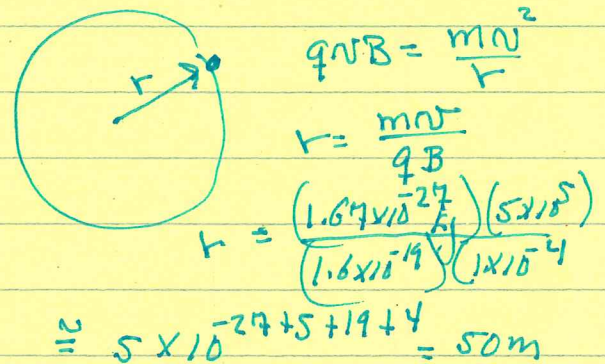 r
qvB = mv²/r
r = mv/qB
r = (1.67x10^-27)(5x10^5)/(1.6x10^-19)(1x10^-4
≅ 5 x 10^-27+5+19+4 = 50m